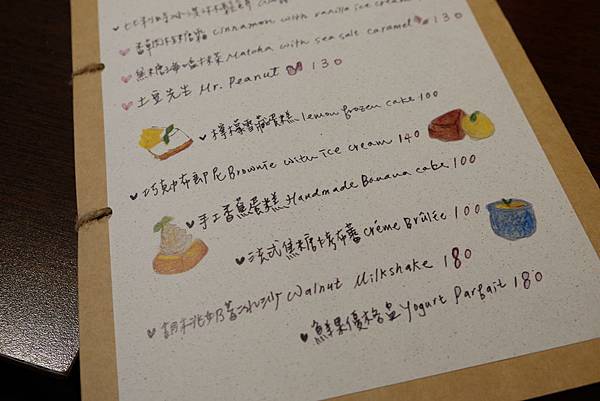 cinnamon with vanilla ice cream
焦糖海鹽抹茶 Matcha with sea salt caramel 130
土豆先生 Mr. Peanut 130
檸檬雪藏蛋糕 lemon frozen cake 100
巧克力布朗尼 Brownie with ice cream 140
手工香蕉蛋糕 Handmade Banana cake 100
法式焦糖烤布蕾 créme Brûlée 100
胡桃奶蓋冰沙 Walnut Milkshake 180
鮮果優格盅 Yogurt Parfait 180